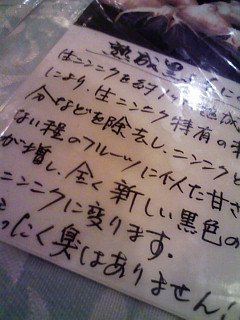 熟成黒にんに
生ニンニクを約
により、生ニンニク特有の
分などを除去し、ニンニクと
ない程のフルーツに似た甘さ
が増し、全く新しい黒色の
ニンニクに変ります。
んにく臭はありません!